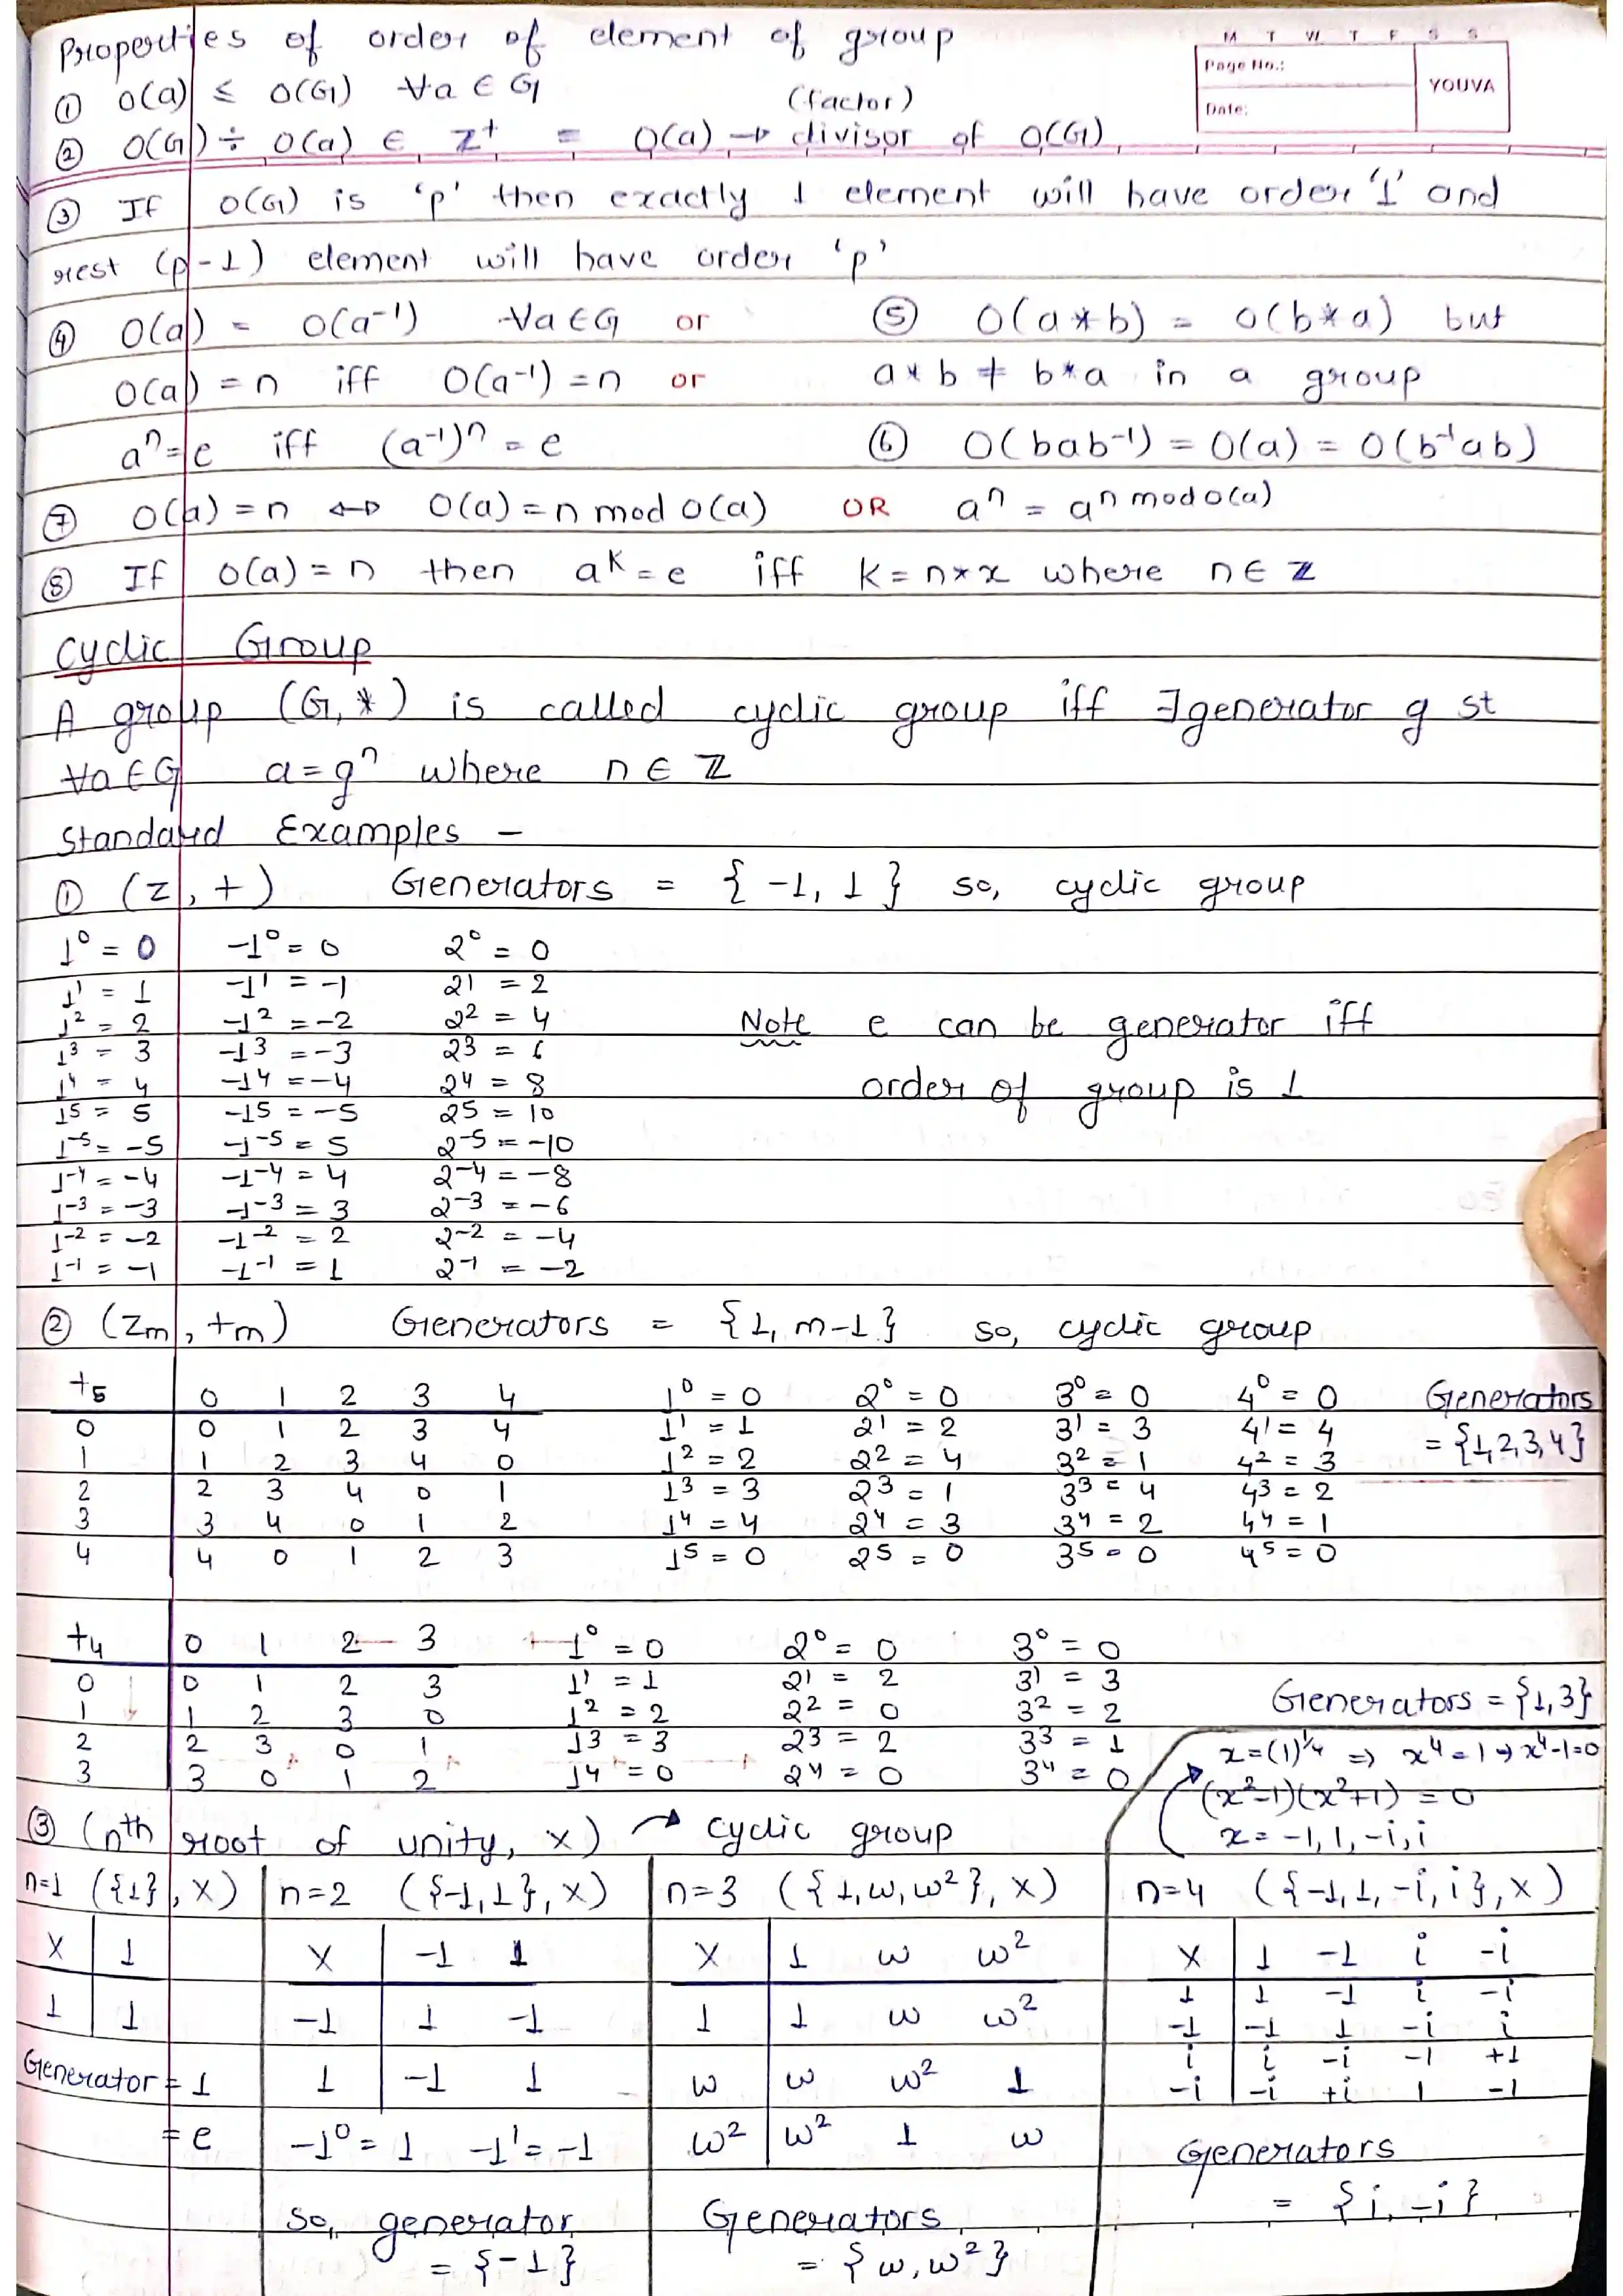 Properties of order of element of group
M T W T F S S
Page No.:
Date:
YOUVA
① O(a) ≤ O(G) ∀a ∈ G
(factor)
② O(G) ÷ O(a) ∈ Z⁺ = O(a) → divisor of O(G)
③ If O(G) is 'p' then exactly 1 element will have order '1' and
rest (p-1) element will have order 'p'
④ O(a) = O(a⁻¹) ∀a∈G or
O(a) = n iff O(a⁻¹) = n or
aⁿ = e iff (a⁻¹)ⁿ = e
⑤ O(a*b) = O(b*a) but
a*b ≠ b*a in a group
⑥ O(bab⁻¹) = O(a) = O(b⁻¹ab)
⑦ O(a) = n ↔ O(a) = n mod O(a) OR aⁿ = a^(n mod o(a))
⑧ If O(a) = n then aᵏ = e iff k = n*x where n ∈ Z
Cyclic Group
A group (G, *) is called cyclic group iff ∃generator g st
∀a∈G a = gⁿ where n ∈ Z
Standard Examples -
① (Z, +) Generators = {-1, 1} so, cyclic group
1⁰ = 0 -1⁰ = 0 2⁰ = 0
1¹ = 1 -1¹ = -1 2¹ = 2
1² = 2 -1² = -2 2² = 4
1³ = 3 -1³ = -3 2³ = 6
1⁴ = 4 -1⁴ = -4 2⁴ = 8
1⁵ = 5 -1⁵ = -5 2⁵ = 10
1⁻⁵ = -5 -1⁻⁵ = 5 2⁻⁵ = -10
1⁻⁴ = -4 -1⁻⁴ = 4 2⁻⁴ = -8
1⁻³ = -3 -1⁻³ = 3 2⁻³ = -6
1⁻² = -2 -1⁻² = 2 2⁻² = -4
1⁻¹ = -1 -1⁻¹ = 1 2⁻¹ = -2
Note e can be generator iff
order of group is 1
② (Zm, +m) Generators = {1, m-1} so, cyclic group
+5 0 1 2 3 4
0 0 1 2 3 4
1 1 2 3 4 0
2 2 3 4 0 1
3 3 4 0 1 2
4 4 0 1 2 3
1⁰ = 0 2⁰ = 0 3⁰ = 0 4⁰ = 0
1¹ = 1 2¹ = 2 3¹ = 3 4¹ = 4
1² = 2 2² = 4 3² = 1 4² = 3
1³ = 3 2³ = 1 3³ = 4 4³ = 2
1⁴ = 4 2⁴ = 3 3⁴ = 2 4⁴ = 1
1⁵ = 0 2⁵ = 0 3⁵ = 0 4⁵ = 0
Generators
= {1,2,3,4}
+4 0 1 2 3
0 0 1 2 3
1 1 2 3 0
2 2 3 0 1
3 3 0 1 2
1⁰ = 0 2⁰ = 0 3⁰ = 0
1¹ = 1 2¹ = 2 3¹ = 3
1² = 2 2² = 0 3² = 2
1³ = 3 2³ = 2 3³ = 1
1⁴ = 0 2⁴ = 0 3⁴ = 0
Generators = {1,3}
x = (1)^¼ ⇒ x⁴ = 1 → x⁴-1=0
(x²-1)(x²+1) = 0
x = -1, 1, -i, i
③ (nth root of unity, ×) → cyclic group
n=1 ({1}, ×)
× 1
1 1
Generator = 1
= e
n=2 ({-1,1}, ×)
× -1 1
-1 1 -1
1 -1 1
-1⁰ = 1 -1¹ = -1
so, generator
= {-1}
n=3 ({1, ω, ω²}, ×)
× 1 ω ω²
1 1 ω ω²
ω ω ω² 1
ω² ω² 1 ω
Generators
= {ω, ω²}
n=4 ({-1, 1, -i, i}, ×)
× 1 -1 i -i
1 1 -1 i -i
-1 -1 1 -i i
i i -i -1 +1
-i -i +i 1 -1
Generators
= {i, -i}